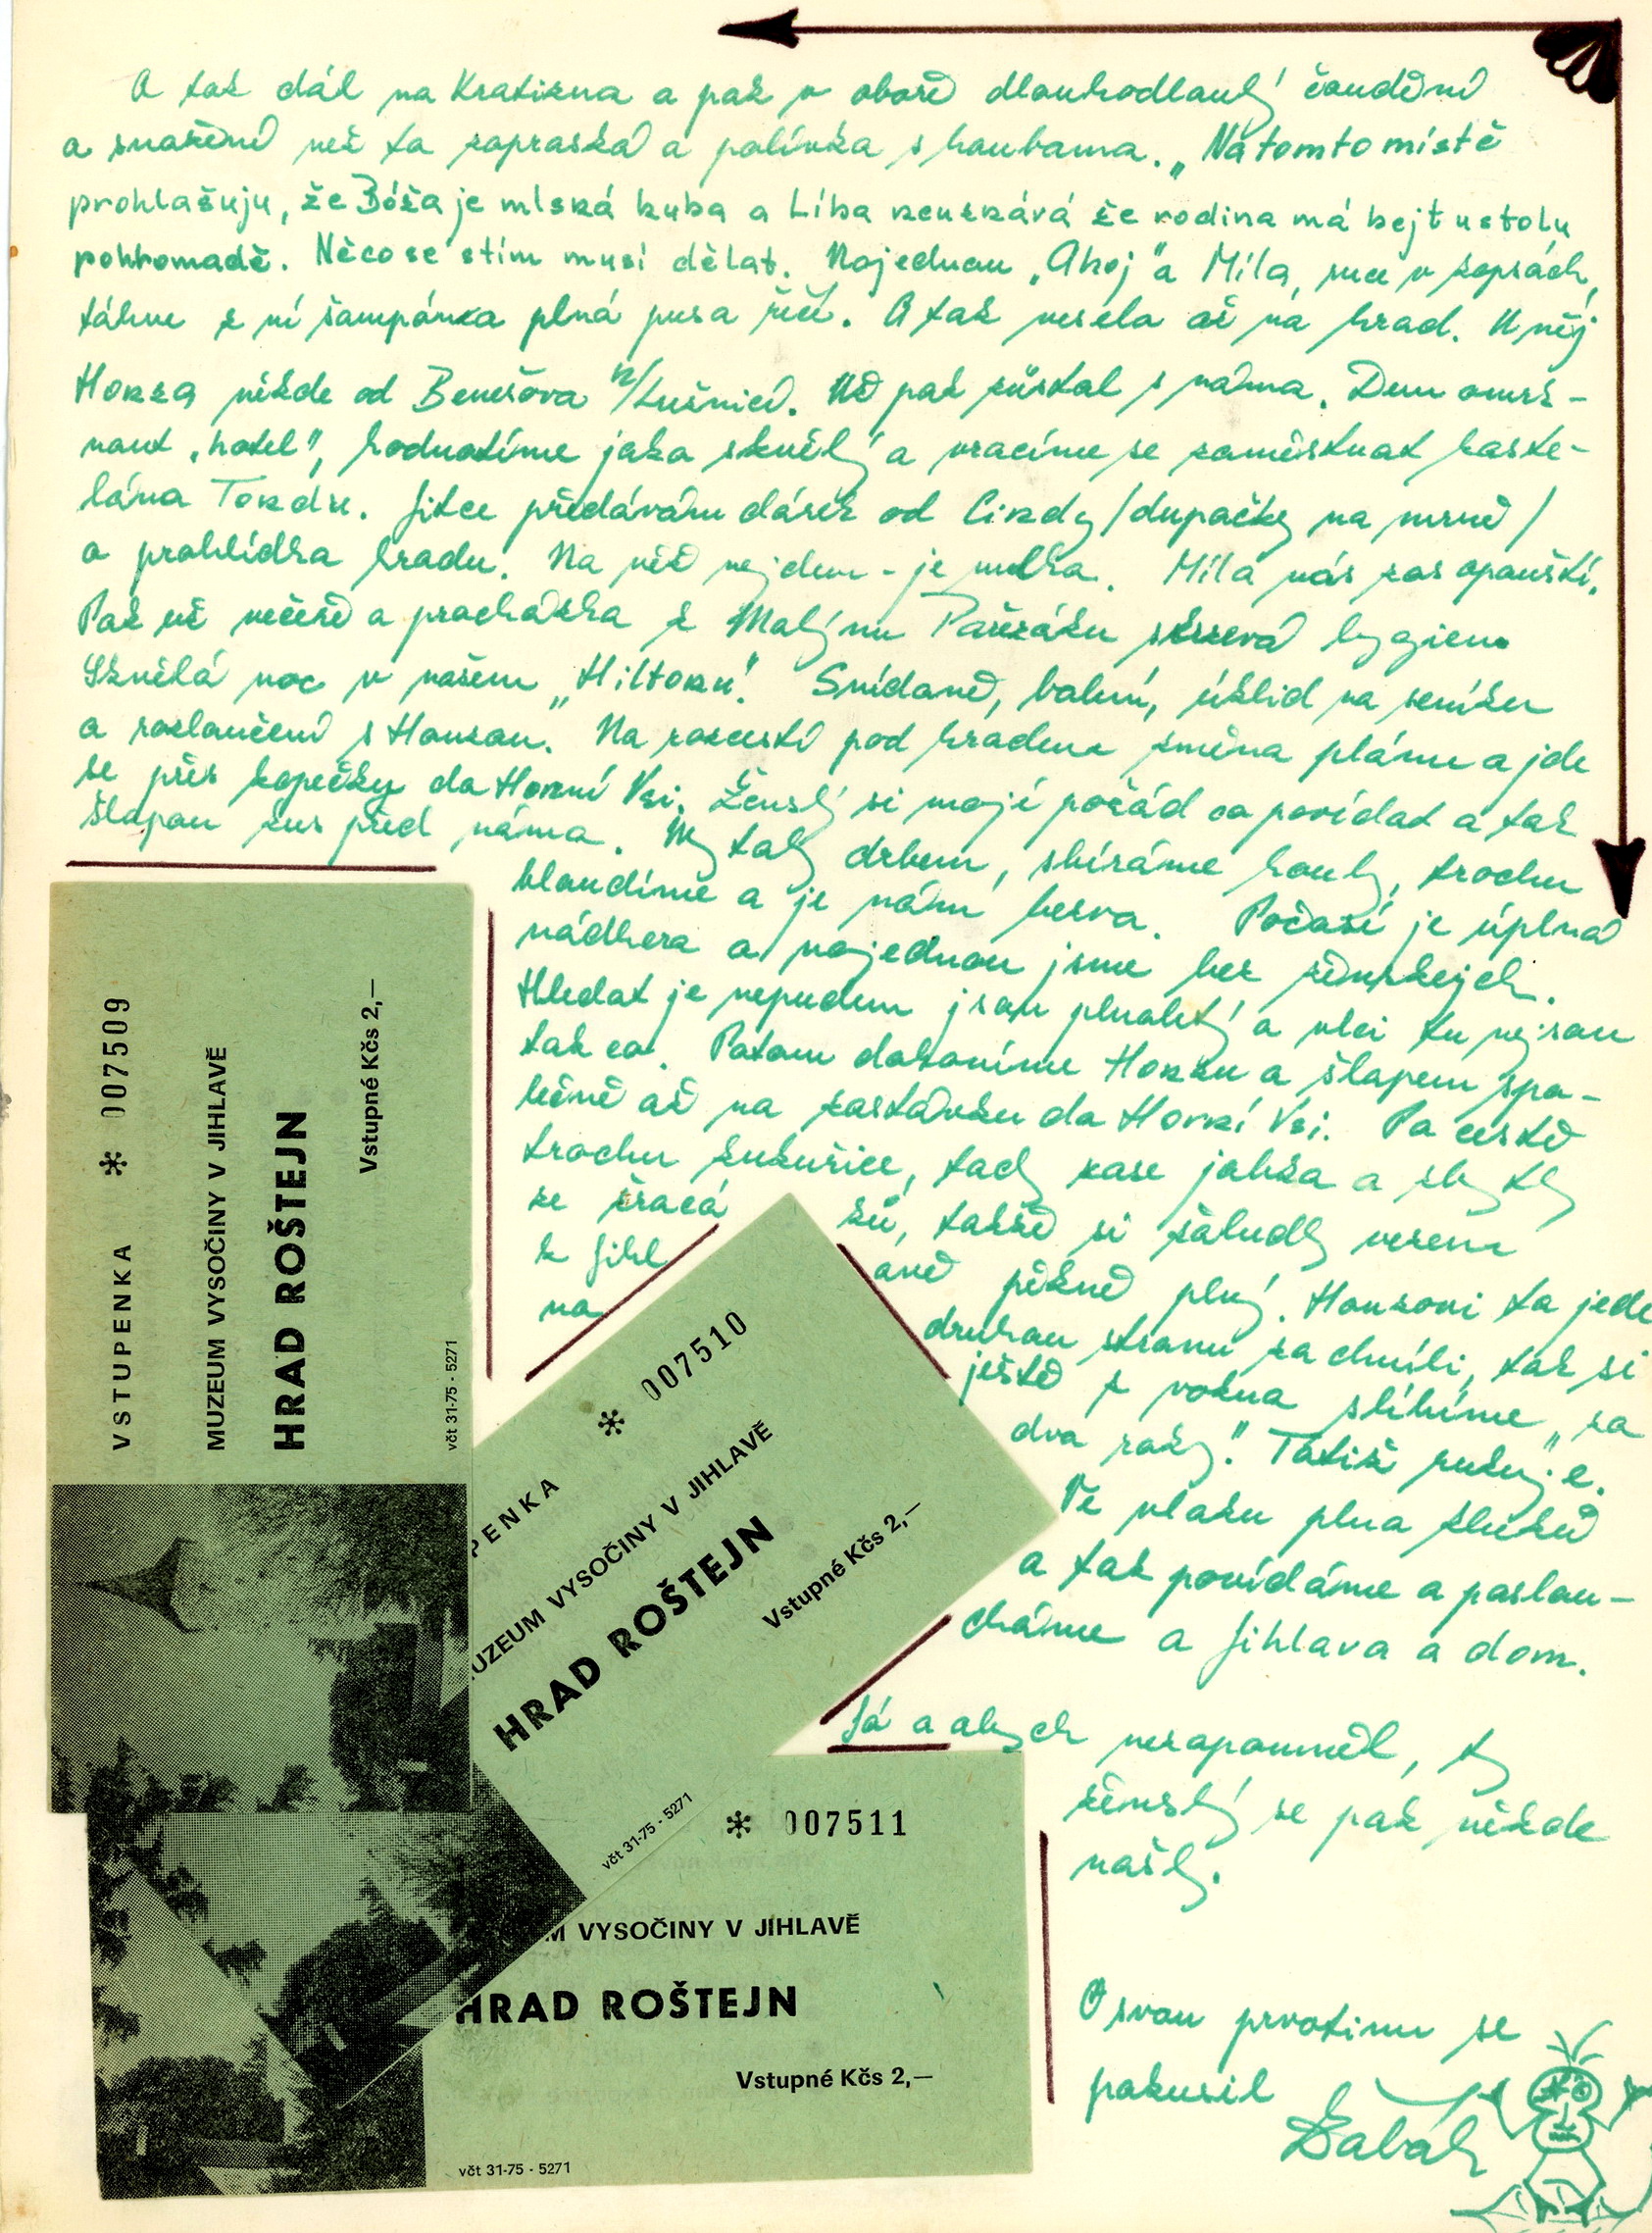 A tak dál na Kratizna a pak v oboře dlouhodlouhý čoudění
a snažení než to zapraská a polívka s houbama. „Na tomto místě
prohlašuju, že Bóža je mlská huba a Líba neuznává že rodina má bejt u stolu
pohromadě. Něco se s tím musí dělat. Najednou „Ahoj" a Míla, sice v kopsách,
táhne z ní šampónka plná pusa řečí. A tak vesela až na hrad. U něj
Honza někde od Benešova n/Lužnicí. Už pak zůstal s náma. Den omrk-
nout „hotel", hodnotíme jako skvělý a vracíme se zaměstnat kaste-
lána Tondu. Jitce předávám dárek od Cindy /dupačky na mrně/
a prohlídka hradu. Na věž nejdem - je mlha. Míla nás zas opouští.
Pak už večeře a procházka k Malýmu Pařezáku hygiena
Skvělá noc v našem „Hiltonu". Snídaně, balení, úklid na seníku
a rozloučení s Honzou. Na rozcestí pod hradem změna plánu a jde
se přes kopečky do Horní Vsi. Ženský si mají pořád co povídat a tak
šlapou kus před náma. My taky drbem, sbíráme houby, trochu
bloudíme a je nám hezva. Počasí je úplná
nádhera a najednou jsme bez ženskejch.
Hledat je nepudem jsou plnoletý a vlci tu nejsou
tak co. Potom dohoníme Honzu a šlapem spo-
lečně až na zastávku do Horní Vsi. Po cestě
trochu kukuřice, tady zase jabka a zbytky
se krácá ků, takže si žaludky vezem
k Jihl avě pěkně plný. Honzovi to jede
na druhou stranu za chvíli, tak si
ještě z vokna slíbíme „za
dva roky". Tatiž
Ve vlaku plna kluků
a tak povídáme a poslou-
cháme a Jihlava a dom.
Jó a abych nezapomněl, ty
ženský se pak někde
našly.
O svou prvotinu se
pokusil
Žabák
VSTUPENKA * 007509
MUZEUM VYSOČINY V JIHLAVĚ
HRAD ROŠTEJN
Vstupné Kčs 2,—
včt 31-75 - 5271
PENKA * 007510
UZEUM VYSOČINY V JIHLAVĚ
HRAD ROŠTEJN
Vstupné Kčs 2,—
včt 31-75 - 5271
* 007511
M VYSOČINY V JIHLAVĚ
HRAD ROŠTEJN
Vstupné Kčs 2,—
včt 31-75 - 5271